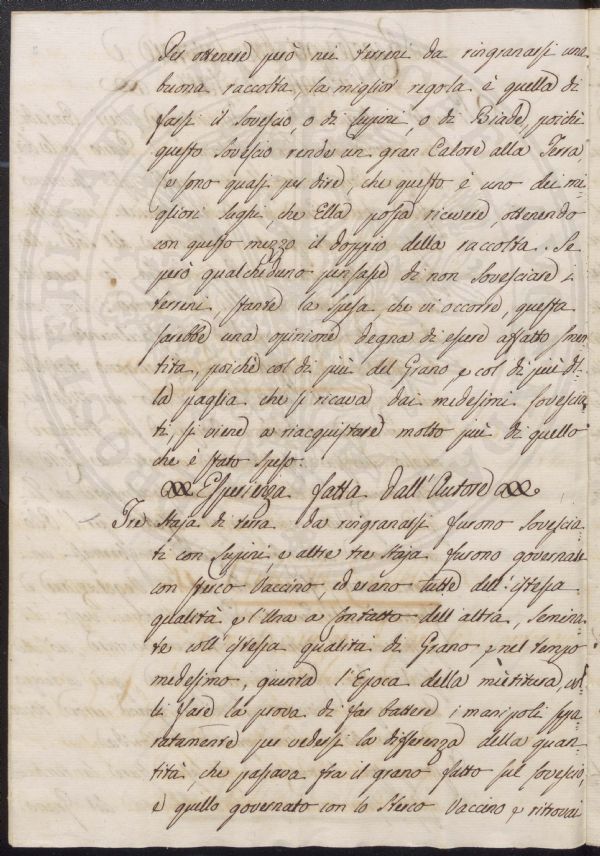 Per ottenere però nei terreni da ringranarsi una
buona raccolta, la miglior regola è quella di
farsi il sovescio, o di Lupini, o di Biade, poiché
questo sovescio rende un gran Calore alla Terra,
(e sono quasi per dire, che questo è uno dei mi=
gliori sughi, che Ella possa ricevere, ottenendo
con questo mezzo il doppio della raccolta. Se
però qualcheduno pensasse di non sovesciare i
terreni, stante la spesa, che vi occorre, questa
sarebbe una opinione degna di essere affatto smen
tita, poichè col di più del Grano, e col di più di=
la paglia che si ricava dai medesimi sovescia
ti, si viene a riacquistare molto più di quello
che è stato speso.
Esperienza fatta dall'Autore
Tre Staja di terra da ringranarsi furono sovescia
ti con Lupini, e altre tre Staja furono governate
con sterco Vaccino, ed erano tutte dell'istessa
qualità e l'una a contatto dell'altra, semina=
te coll'istessa qualità di Grano e nel tempo
medesimo, giunta l'Epoca della mietitura, vol
li fare la prova di far battere i manipoli sepa
ratamente per vedersi la differenza della quan
tità, che passava fra il grano fatto sul sovescio,
e quello governato con lo sterco Vaccino e ritrovai